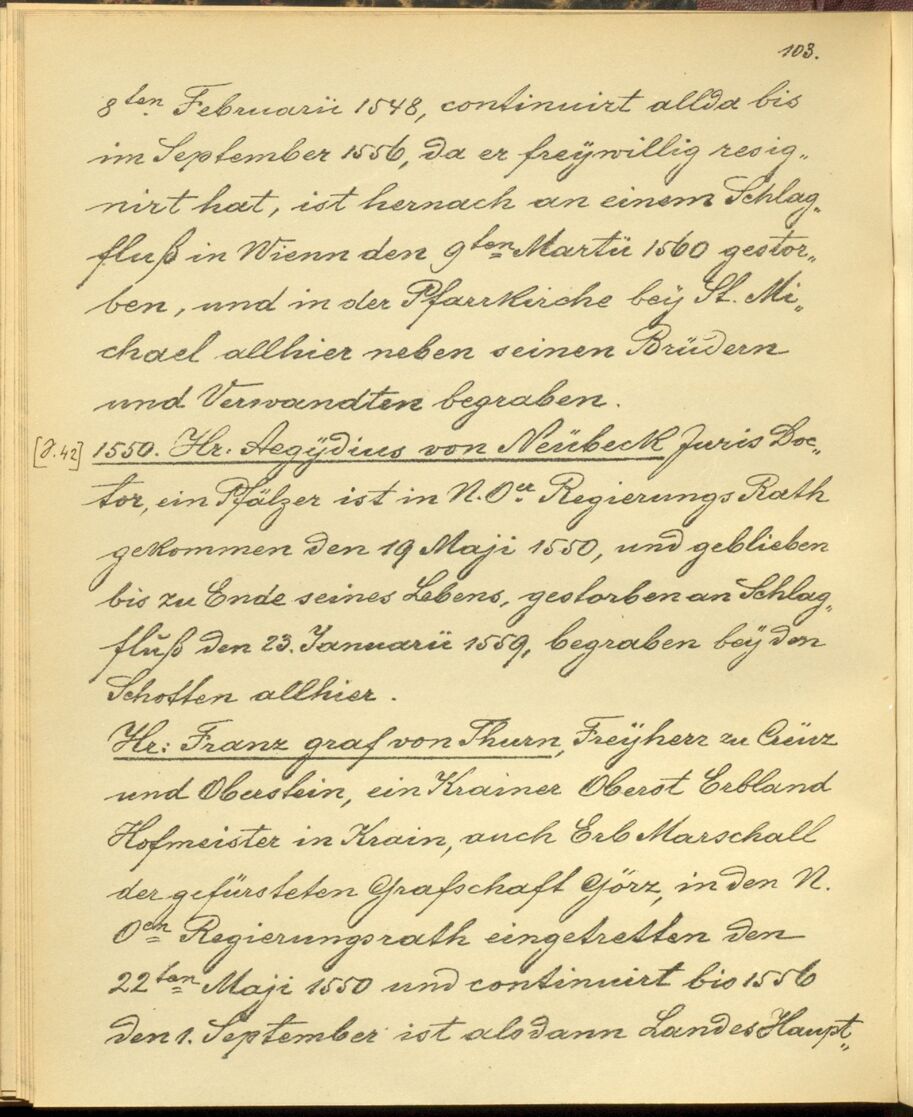 103.
8ten Februarii 1548, continuirt allda bis
im September 1556, da er freÿwillig resig„
nirt hat, ist hernach an einem Schlag„
fluß in Wienn den 9ten Martii 1560 gestor„
ben, und in der Pfarrkirche beÿ St. Mi„
chael allhier neben seinen Brüdern
und Verwandten begraben.
[J. 42] 1550. Hr. Aegÿdius von Neübeck Juris Doc„
tor, ein Pfälzer ist in N. Oer Regierungs Rath
gekommen den 19 Maji 1550, und geblieben
bis zu Ende seines Lebens, gestorben an Schlag„
fluß den 23. Januarii 1559, begraben beÿ den
Schotten allhier.
Hr: Franz graf von Thurn, Freÿherr zu Creüz
und Oberstein, ein Krainer Oberst Erbland
Hofmeister in Krain, auch Erb Marschall
der gefürsteten Grafschaft Görz, in den N.
Oen Regierungsrath eingetretten den
22ten Maji 1550 und continuirt bis 1556
den 1. September ist alsdann Landes Haupt„